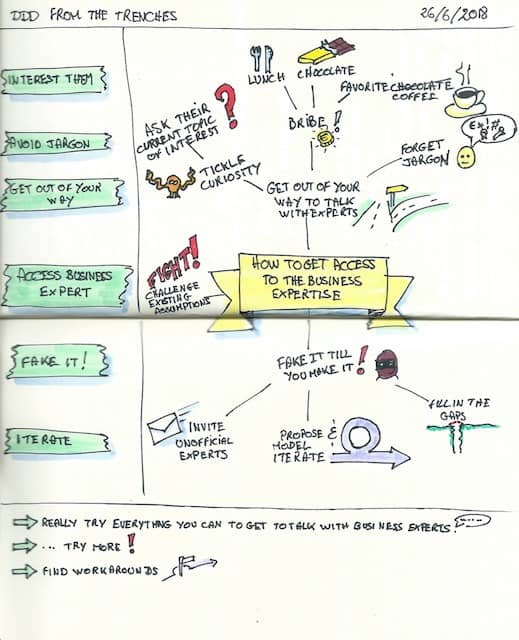 DDD FROM THE TRENCHES
26/6/2018
INTEREST THEM
AVOID JARGON
GET OUT OF YOUR
WAY
ACCESS BUSINESS
EXPERT
FAKE IT!
ITERATE
LUNCH
CHOCOLATE
FAVORITE CHOCOLATE
COFFEE
BRIBE!
ASK THEIR
CURRENT TOPIC
OF INTEREST
?
TICKLE
CURIOSITY
FORGET
JARGON
GET OUT OF YOUR
WAY TO TALK
WITH EXPERTS
FIGHT!
CHALLENGE
EXISTING
ASSUMPTIONS
HOW TO GET ACCESS
TO THE BUSINESS
EXPERTISE
FAKE IT TILL
YOU MAKE IT!
INVITE
UNOFFICIAL
EXPERTS
PROPOSE &
MODEL
ITERATE
FILL IN THE
GAPS
REALLY TRY EVERYTHNG YOU CAN TO GET TO TALK WITH BUSINESS EXPERTS!
... TRY MORE!
FIND WORKAROUNDS